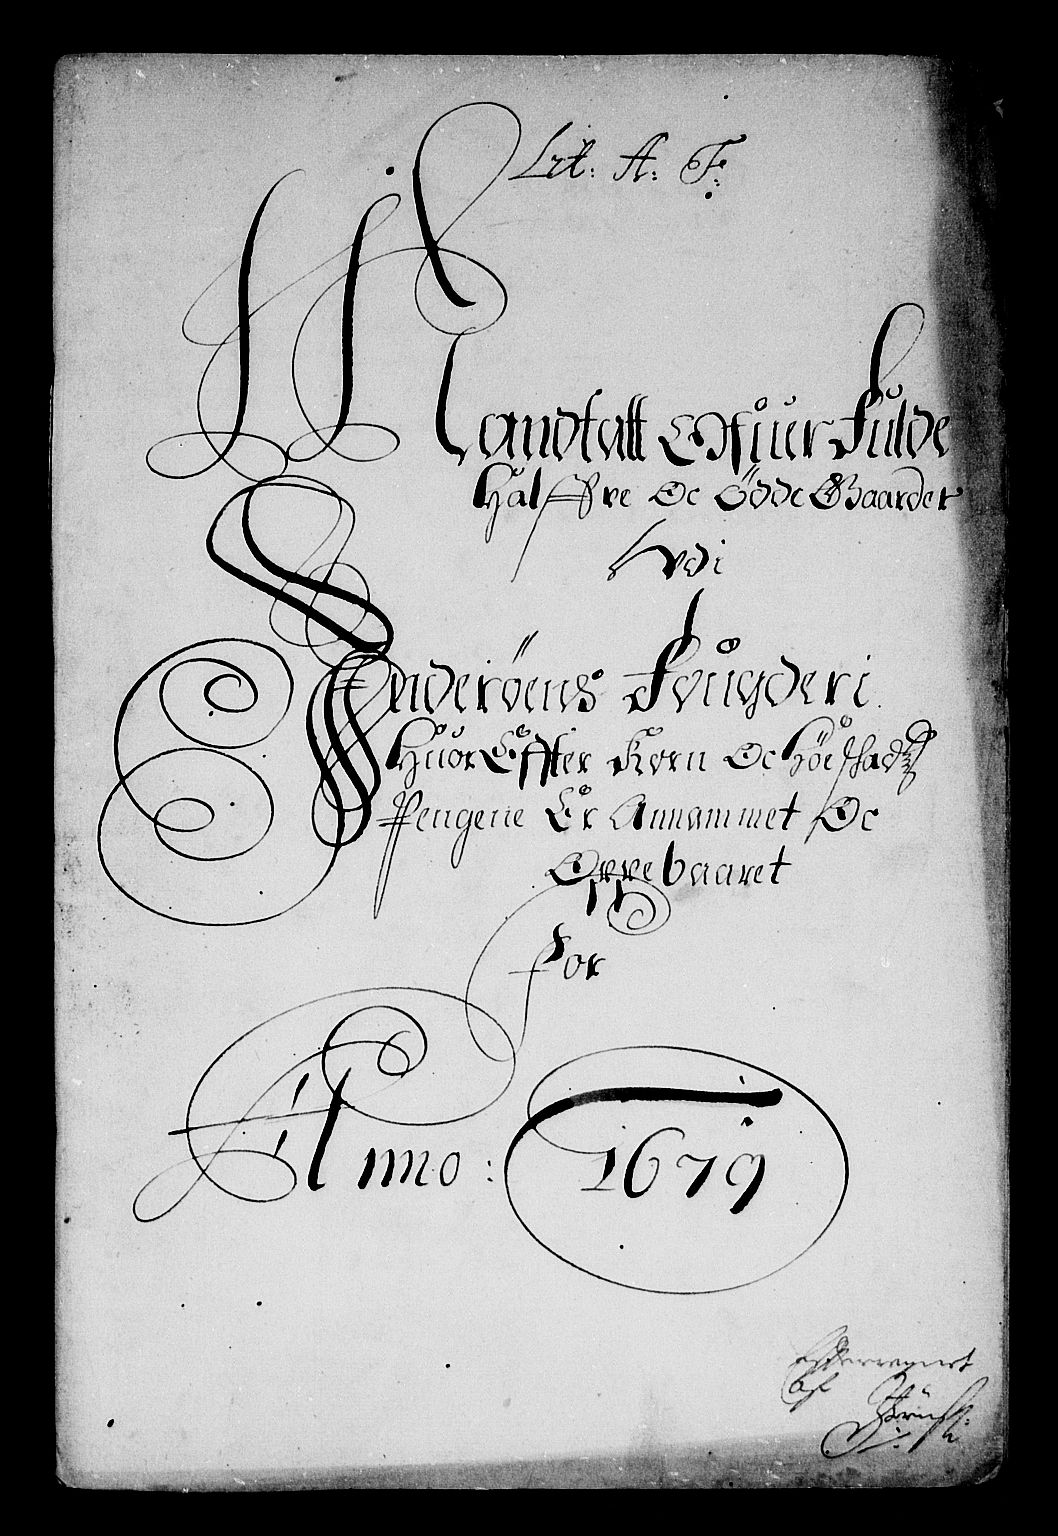 Lit: A: F:
Mandtall Offuer Fulde
Halffve Oc Ödde Gaarder
Vdi
Inderöens Fougderi
Huor Effter Korn Oc Höeschads
Pengene Er Annammet Oc
Oppebaaret
For
Anno: 1679
Efterregnet
af